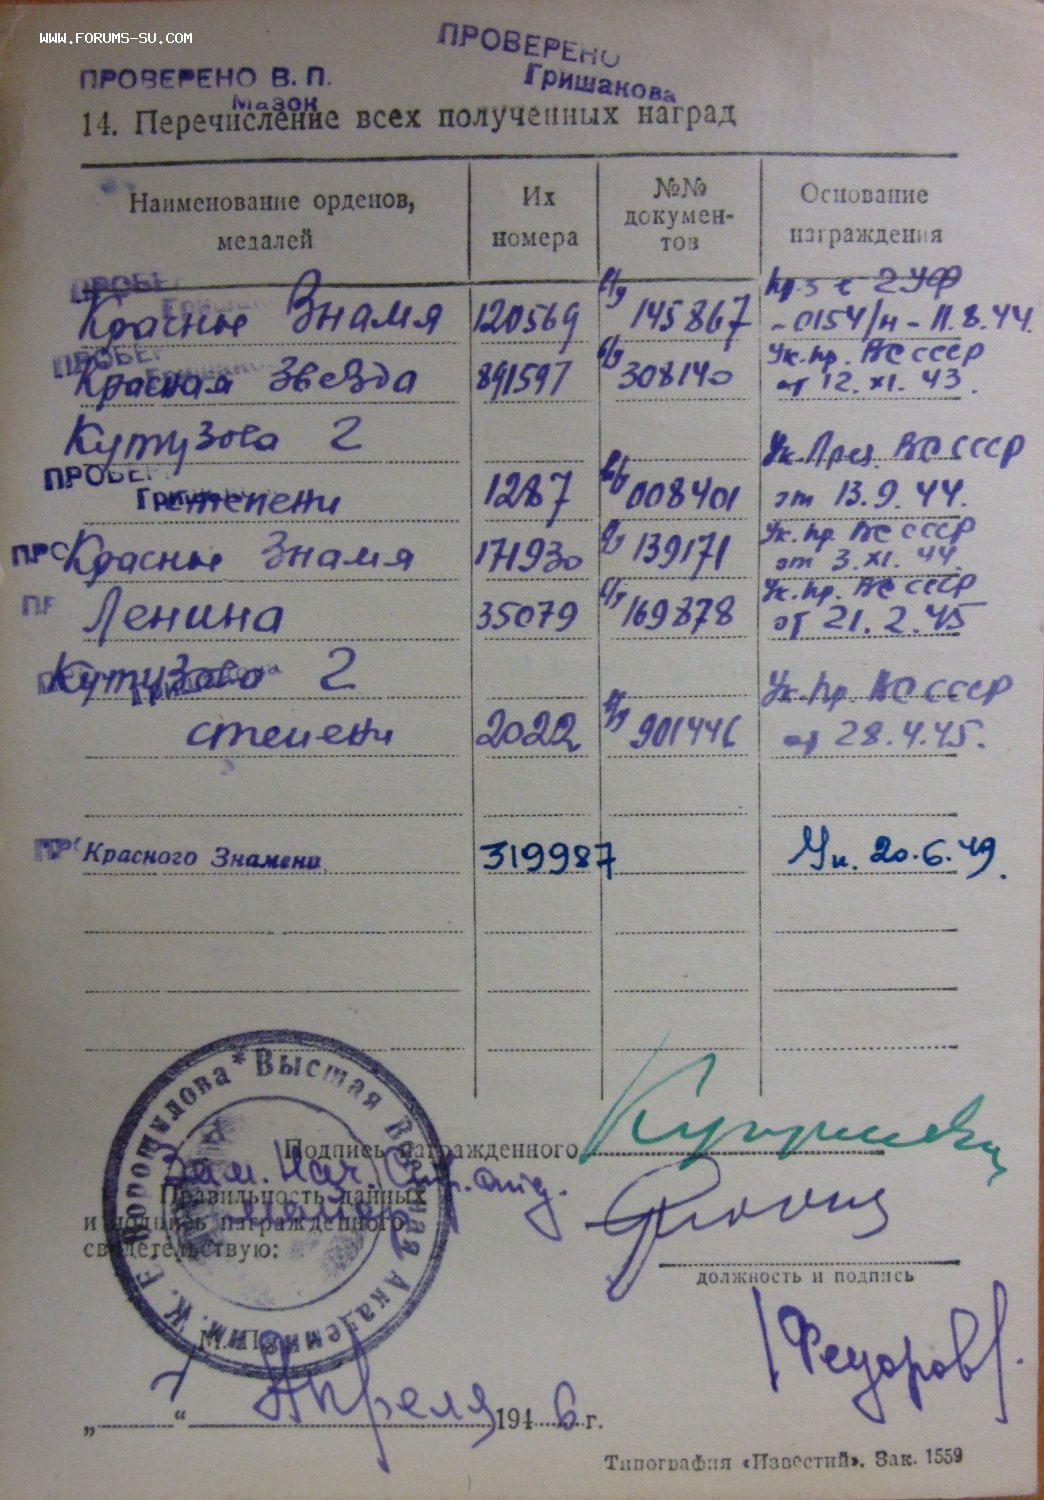 WWW.FORUMS-SU.COM
ПРОВЕРЕНО
Гришакова
ПРОВЕРЕНО В. П.
Мазок
14. Перечисление всех полученных наград
Наименование орденов, медалей
Их номера
№№ докумен-тов
Основание награждения
Пр-з с 2 УФ
Красное Знамя 120569 145867 -0154/н - 11.8.44.
Ук. Пр. ВС СССР
Красная Звезда 891597 308140 от 12. XI. 43.
Кутузова 2 Ук. През. ВС СССР
ПРОВЕР
степени 1287 008401 от 13.9.44.
Ук. Пр. ВС СССР
Красное Знамя 171930 139171 от 3. XI. 44.
Ук. Пр. ВС СССР
Ленина 35079 169878 от 21.2.45
Кутузова 2 Ук. Пр. ВС СССР
степени 2022 901446 от 28.4.45.
Красного Знамени 319987 Ук. 20.6.49.
* Высшая Военная Академия им. К. Е. Ворошилова
Подпись награжденного
Зам. Нач. стр. отд.
Правильность данных
майор
и подпись награжденного
свидетельствую:
должность и подпись
М. П.
/Федоров/.
„ 7 “ Апреля 1946 г.
Типография «Известий». Зак. 1559